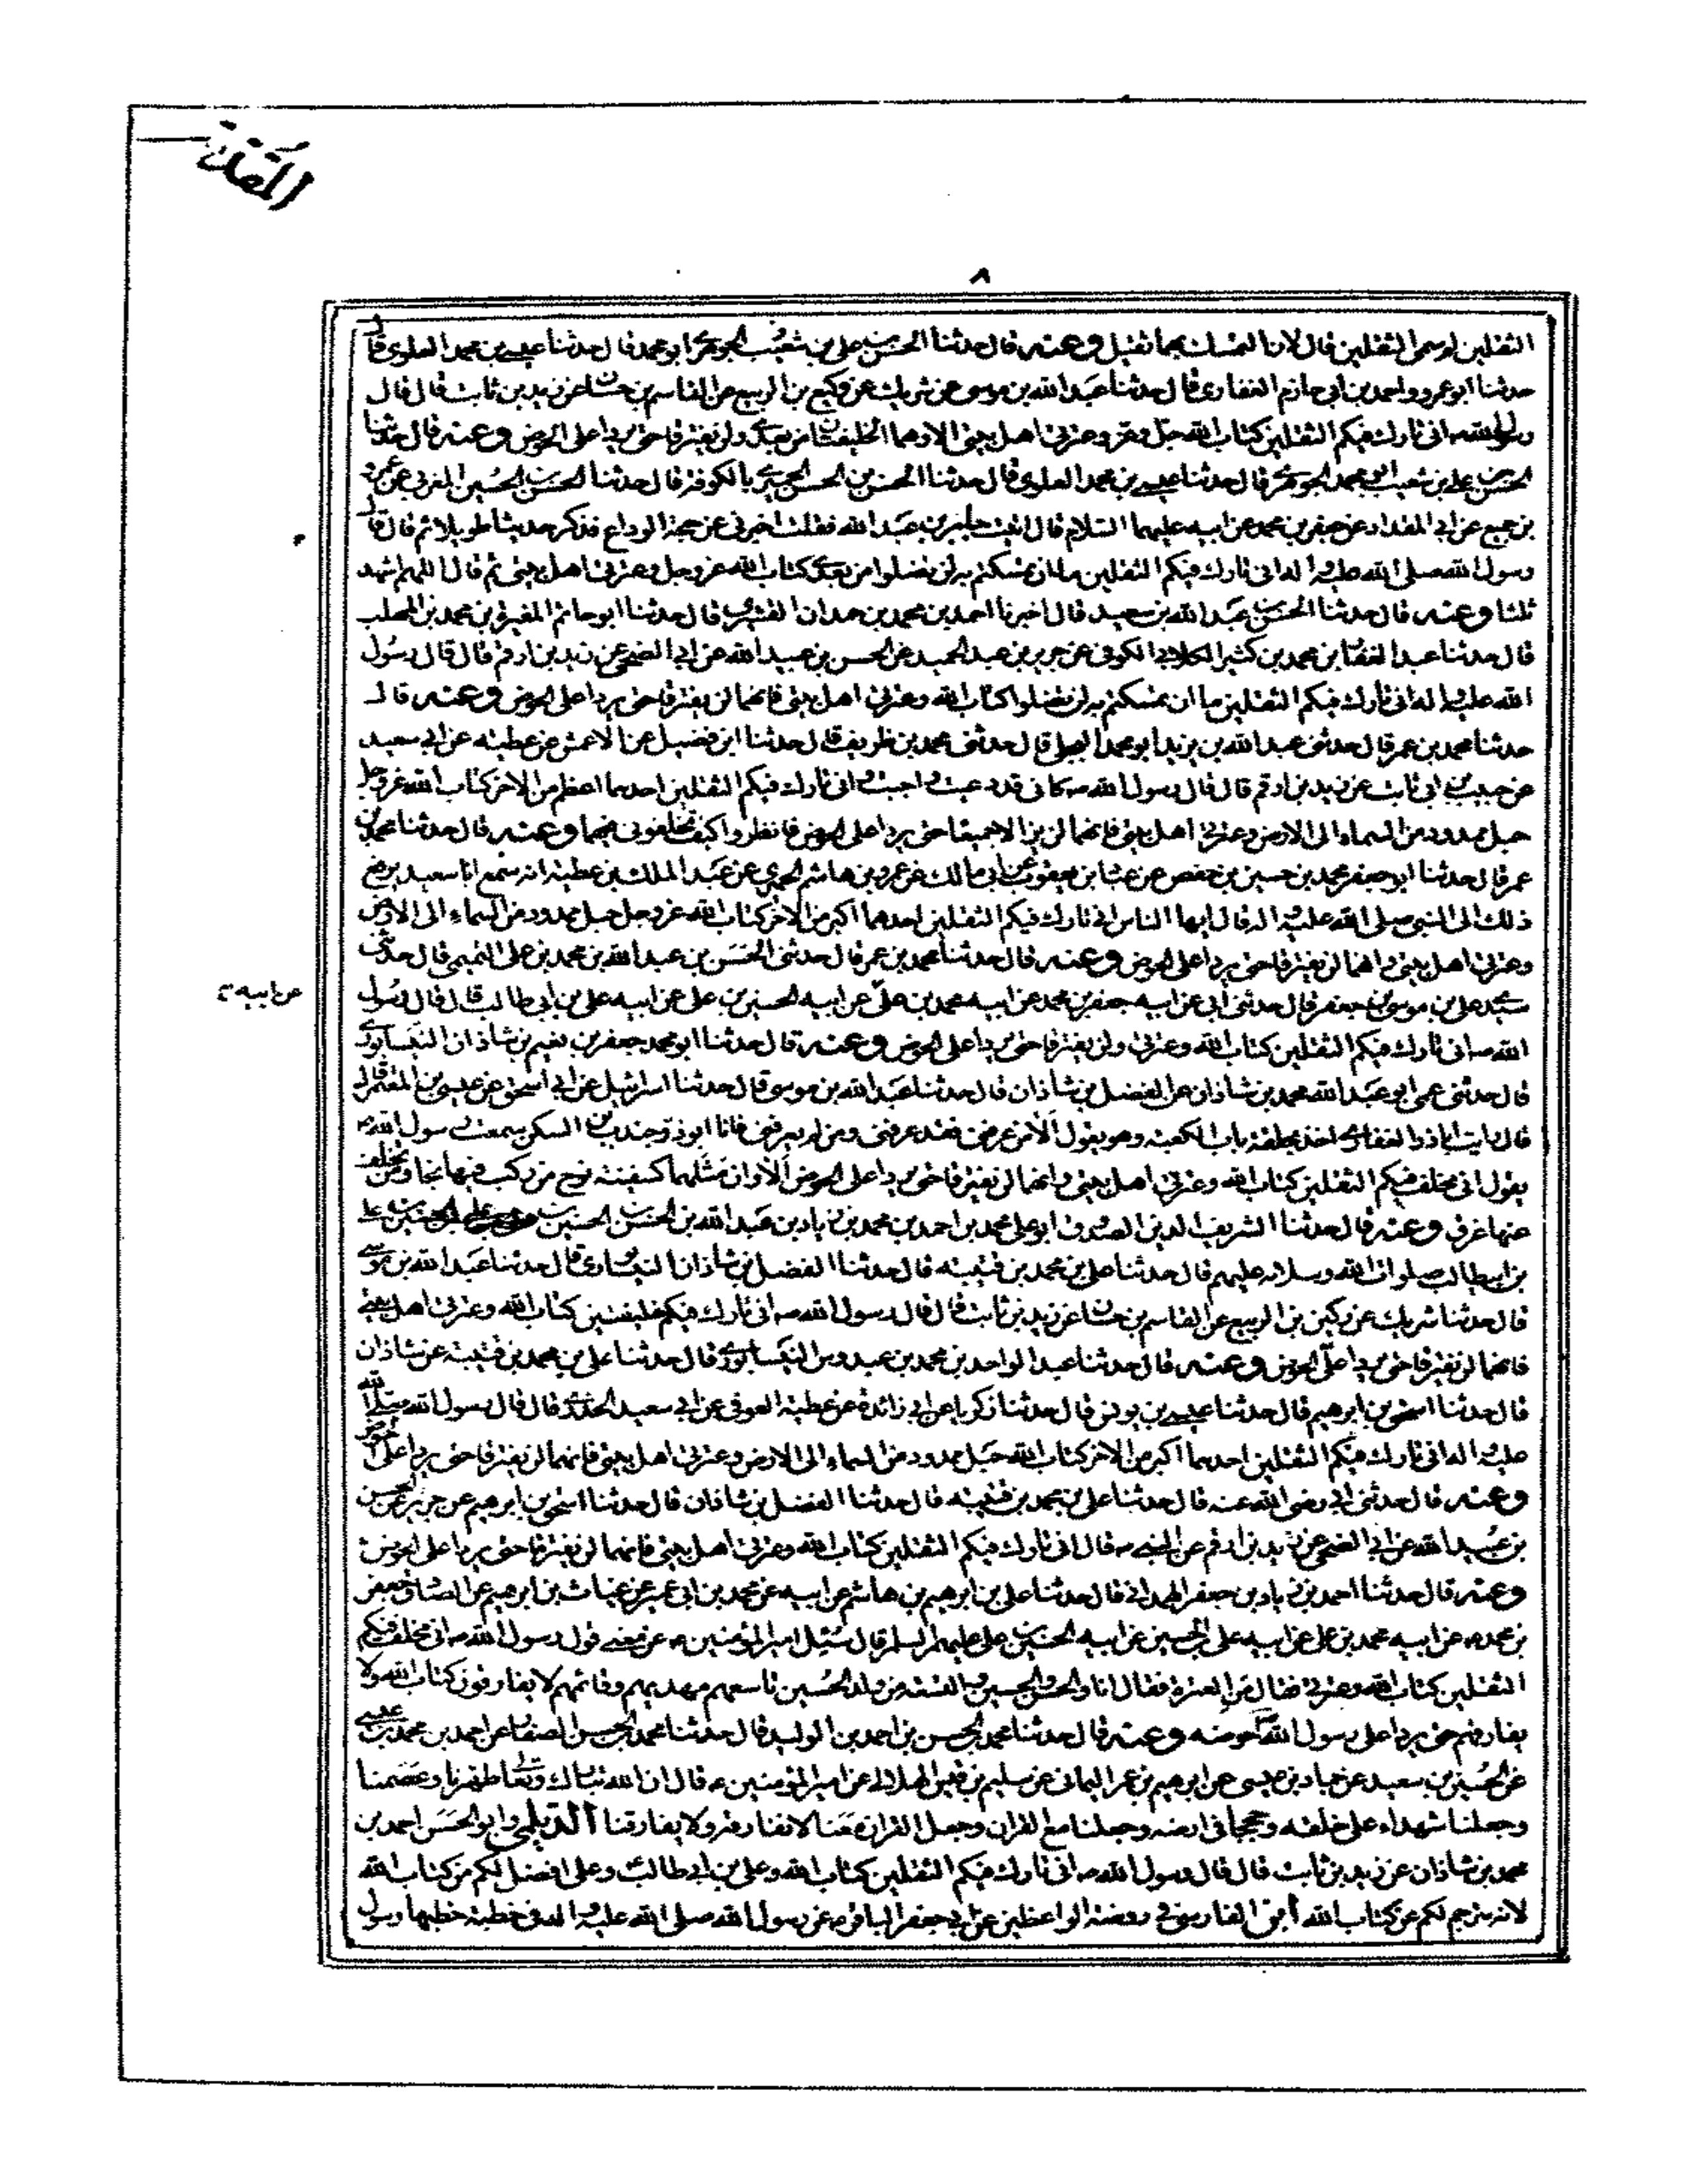 المقدمة
٨
الثقلين لم سمى الثقلين قال لان التمسك بهما ثقيل وعنه قال حدثنا الحسن بن علي بن شعيب الجوهري ابو محمد قال حدثنا عيسى بن محمد العلوي قال
حدثنا ابو عمرو احمد بن ابي حازم الغفاري قال حدثنا عبد الله بن موسى عن شريك عن وكيع بن الربيع عن القاسم بن حسان عن زيد بن ثابت قال قال
رسول الله ص اني تارك فيكم الثقلين كتاب الله جل وعز وعترتي اهل بيتي الا وهما الخليفتان من بعدي ولن يفترقا حتى يردا على الحوض وعنه قال حدثنا
الحسن بن علي بن شعيب ابو محمد الجوهري قال حدثنا عيسى بن محمد العلوي قال حدثنا الحسن بن الحسن الحميري بالكوفة قال حدثنا الحسن بن الحسين المغربي عن عمرو
بن جميع عن ابي المقداد عن جعفر بن محمد عن ابيه عليهما السلام قال اتيت جابر بن عبد الله فقلت اخبرني عن حجة الوداع فذكر حديثا طويلا ثم قال قال
رسول الله صلى الله عليه واله اني تارك فيكم الثقلين ما ان تمسكتم به لن تضلوا من بعدي كتاب الله عز وجل وعترتي اهل بيتي ثم قال اللهم اشهد
ثلثا وعنه قال حدثنا الحسن بن عبد الله بن سعيد قال اخبرنا احمد بن محمد بن حمدان القشيري قال حدثنا ابو حاتم المغيرة بن محمد بن المهلب
قال حدثنا عبد الغفار بن محمد بن كثير الكلابي الكوفي عن جرير بن عبد الحميد عن الحسن بن عبيد الله عن ابي الضحى عن زيد بن ارقم قال قال رسول
الله عليه واله اني تارك فيكم الثقلين ما ان تمسكتم به لن تضلوا كتاب الله وعترتي اهل بيتي فانهما لن يفترقا حتى يردا على الحوض وعنه قال
حدثنا محمد بن عمر قال حدثني عبد الله بن يزيد ابو محمد البجلي قال حدثني محمد بن ظريف قال حدثنا ابن فضيل عن الاعمش عن عطيه عن ابي سعيد
عن حبيب بن ابي ثابت عن زيد بن ارقم قال قال رسول الله ص كاني قد دعيت واجبت واني تارك فيكم الثقلين احدهما اعظم من الاخر كتاب الله عز وجل
حبل ممدود من السماء الى الارض وعترتي اهل بيتي فانهما لن يزالا جميعا حتى يردا على الحوض فانظروا كيف تخلفوني فيهما وعنه قال حدثنا محمد بن
عمر قال حدثنا ابو جعفر محمد بن حسين بن حفص عن عباد بن يعقوب عن ابي مالك عن عمرو بن هاشم الحميري عن عبد الملك بن عطية انه سمع ابا سعيد يرفع
ذلك الى النبي صلى الله عليه واله قال ايها الناس اني تارك فيكم الثقلين احدهما اكبر من الاخر كتاب الله عز وجل حبل ممدود من السماء الى الارض
وعترتي اهل بيتي وانهما لن يفترقا حتى يردا على الحوض وعنه قال حدثنا محمد بن عمر قال حدثني الحسن بن عبد الله بن محمد بن علي التميمي قال حدثني
سيدي علي بن موسى بن جعفر قال حدثني ابي عن ابيه جعفر بن محمد عن ابيه محمد بن علي عن ابيه الحسين بن علي عن ابيه علي بن ابي طالب قال قال رسول
عن ابيه
الله ص اني تارك فيكم الثقلين كتاب الله وعترتي ولن يفترقا حتى يردا على الحوض وعنه قال حدثنا ابو محمد جعفر بن نعيم بن شاذان النيسابوري
قال حدثني عمي ابو عبد الله محمد بن شاذان عن الفضل بن شاذان قال حدثنا عبد الله بن موسى قال حدثنا اسرائيل عن ابي اسحق عن عيسى بن المعتمر قال
قال رايت ابا ذر الغفاري اخذ بحلقة باب الكعبة وهو يقول الا من عرفني فقد عرفني ومن لم يعرفني فانا ابو ذر جندب بن السكن سمعت رسول الله ص
يقول اني مخلف فيكم الثقلين كتاب الله وعترتي اهل بيتي وانهما لن يفترقا حتى يردا على الحوض الا وان مثلهما كسفينة نوح من ركب فيها نجا ومن تخلف
عنها غرق وعنه قال حدثنا الشريف الدين الصدوق ابو علي محمد بن احمد بن محمد بن زياد بن عبد الله بن الحسن بن الحسين بن علي بن الحسين بن علي
بن ابيطالب صلوات الله وسلامه عليهم قال حدثنا علي بن محمد بن قتيبة قال حدثنا الفضل بن شاذان النيسابوري قال حدثنا عبد الله بن موسى
قال حدثنا شريك عن ركين بن الربيع عن القاسم بن حسان عن زيد بن ثابت قال قال رسول الله ص اني تارك فيكم خليفتين كتاب الله وعترتي اهل بيتي
فانهما لن يفترقا حتى يردا على الحوض وعنه قال حدثنا عبد الواحد بن محمد بن عبدوس النيسابوري قال حدثنا علي بن محمد بن قتيبة عن شاذان
قال حدثنا اسحق بن ابرهيم قال حدثنا عيسى بن يونس قال حدثنا زكريا عن ابي زائدة عن عطية العوفي عن ابي سعيد الخدري قال قال رسول الله صلى الله
عليه واله اني تارك فيكم الثقلين احدهما اكبر من الاخر كتاب الله حبل ممدود من السماء الى الارض وعترتي اهل بيتي فانهما لن يفترقا حتى يردا على الحوض
وعنه قال حدثني ابي رضي الله عنه قال حدثنا علي بن محمد بن قتيبة قال حدثنا الفضل بن شاذان قال حدثنا اسحق بن ابرهيم عن جرير عن الحسن
بن عبيد الله عن ابي الضحى عن زيد بن ارقم عن النبي ص قال اني تارك فيكم الثقلين كتاب الله وعترتي اهل بيتي فانهما لن يفترقا حتى يردا على الحوض
وعنه قال حدثنا احمد بن زياد بن جعفر الهمداني قال حدثنا علي بن ابرهيم بن هاشم عن ابيه عن محمد بن ابي عمير عن غياث بن ابرهيم عن الصادق جعفر
بن محمد ع عن ابيه محمد بن علي عن ابيه علي بن الحسين عن ابيه الحسين بن علي عليهم السلم قال سئل امير المؤمنين ع عن معنى قول رسول الله ص اني مخلف فيكم
الثقلين كتاب الله وعترتي فقال من العترة فقال انا والحسن والحسين والتسعة من ولد الحسين تاسعهم مهديهم وقائمهم لا يفارقون كتاب الله ولا
يفارقهم حتى يردا على رسول الله حوضه وعنه قال حدثنا محمد بن الحسن بن احمد بن الوليد قال حدثنا محمد بن الحسن الصفار عن احمد بن محمد بن عيسى
عن الحسين بن سعيد عن حماد بن عيسى عن ابرهيم بن عمر اليماني عن سليم بن قيس الهلالي عن امير المؤمنين ع قال ان الله تبارك وتعالى طهرنا وعصمنا
وجعلنا شهداء على خلقه وحججا في ارضه وجعلنا مع القران وجعل القران معنا لا نفارقه ولا يفارقنا الديلمي وابو الحسن احمد بن
محمد بن شاذان عن زيد بن ثابت قال قال رسول الله ص اني تارك فيكم الثقلين كتاب الله وعلي بن ابي طالب وعلي افضل لكم من كتاب الله
لانه يترجم لكم عن كتاب الله ابن الفارسي في روضة الواعظين عن ابي جعفر الباقر ع عن رسول الله صلى الله عليه واله في خطبة خطبها رسول